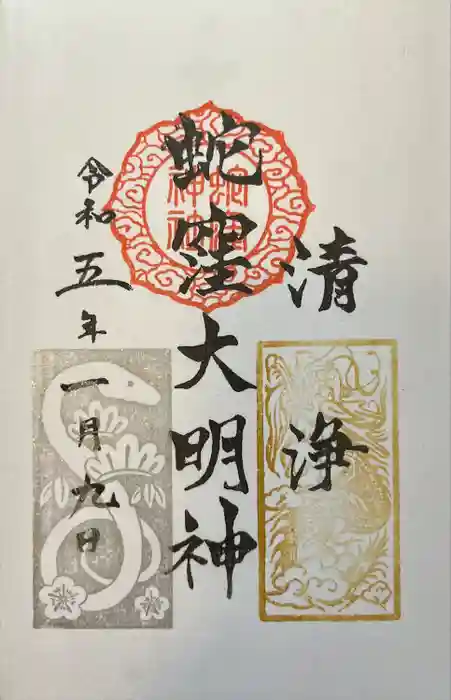 清浄
蛇窪大明神
令和五年一月九日
蛇窪
神社